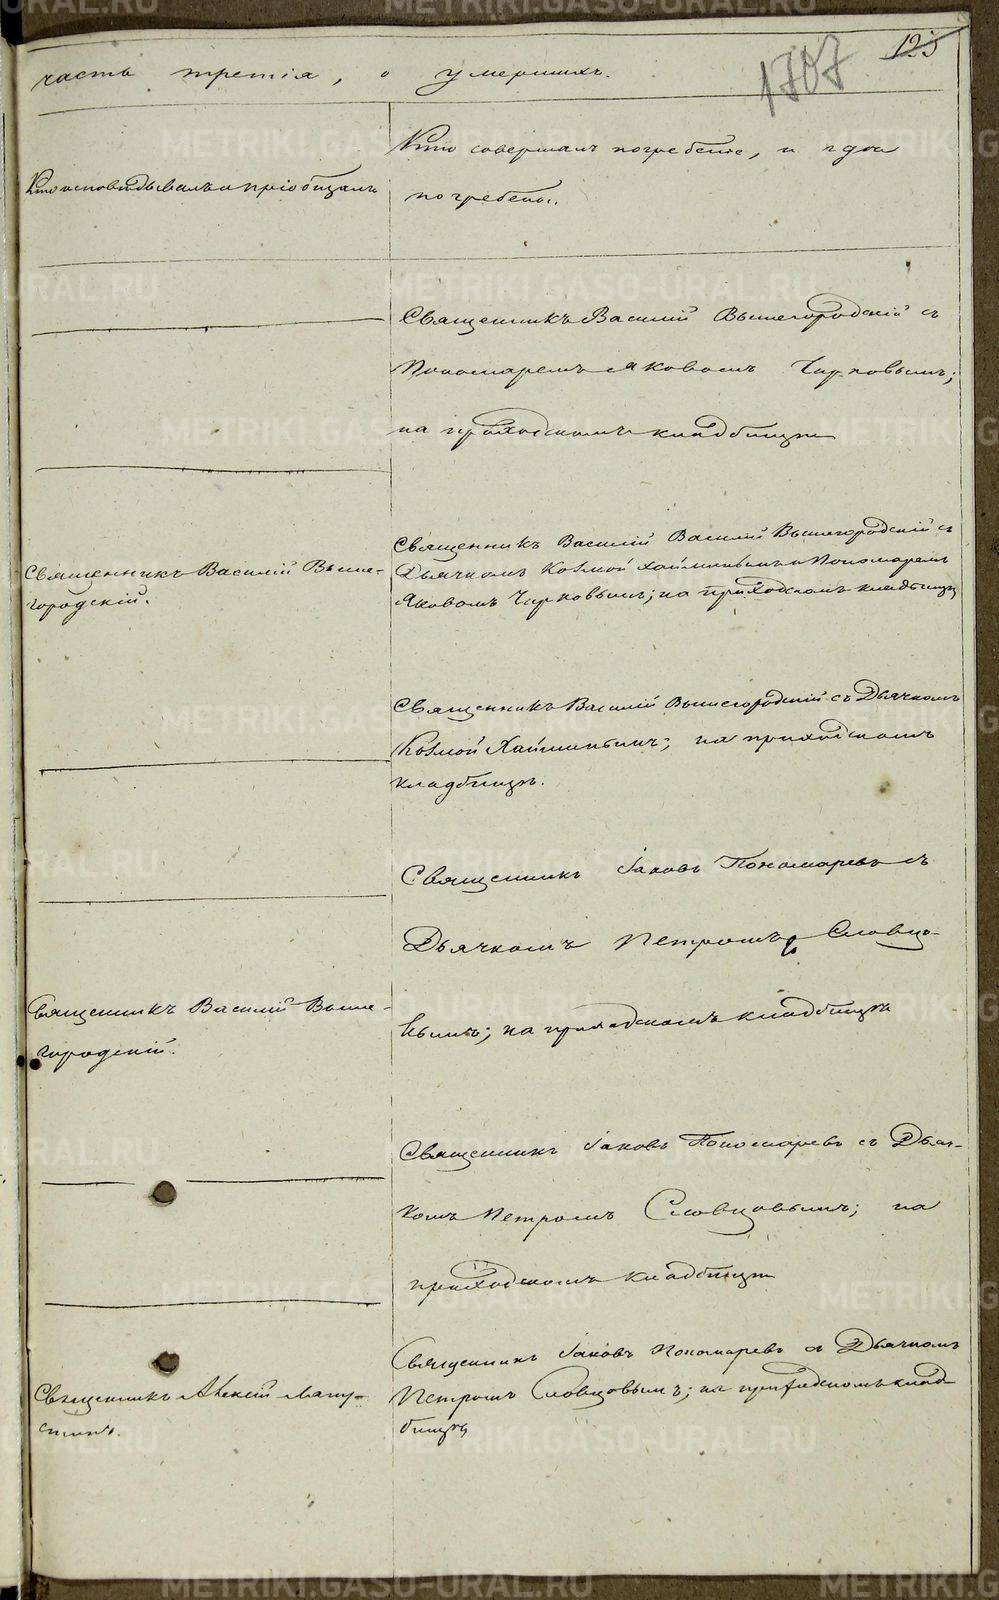 125
1707
часть третія, о умершихъ.
Кто исповѣдывалъ и пріобщалъ
Кто совершалъ погребеніе, и гдѣ
погребены.
Священникъ Василій Вышегородскій съ
Пономаремъ Яковомъ Чирковымъ;
на приходскомъ кладбищѣ
Священникъ Василій Выше-
городскій.
Священникъ Василій Василій Вышегородскій съ
Дьячкомъ Козмой Хайминымъ и Пономаремъ
Яковомъ Чирковымъ; на приходскомъ кладбищѣ
Священникъ Василій Вышегородскій съ Дьячкомъ
Козмой Хайминымъ; на приходскомъ
кладбищѣ.
Священникъ Василій Выше-
городскій.
Священникъ Іаковъ Пономаревъ съ
Дьячкомъ Петромъ Словцо-
вымъ; на приходскомъ кладбищѣ
Священникъ Іаковъ Пономаревъ съ Дьяч-
комъ Петромъ Словцовымъ; на
приходскомъ кладбищѣ
Священникъ Алексій
Священникъ Іаковъ Пономаревъ съ Дьячкомъ
Петромъ Словцовымъ; на приходскомъ клад-
бищѣ
METRIKI.GASO-URAL.RU